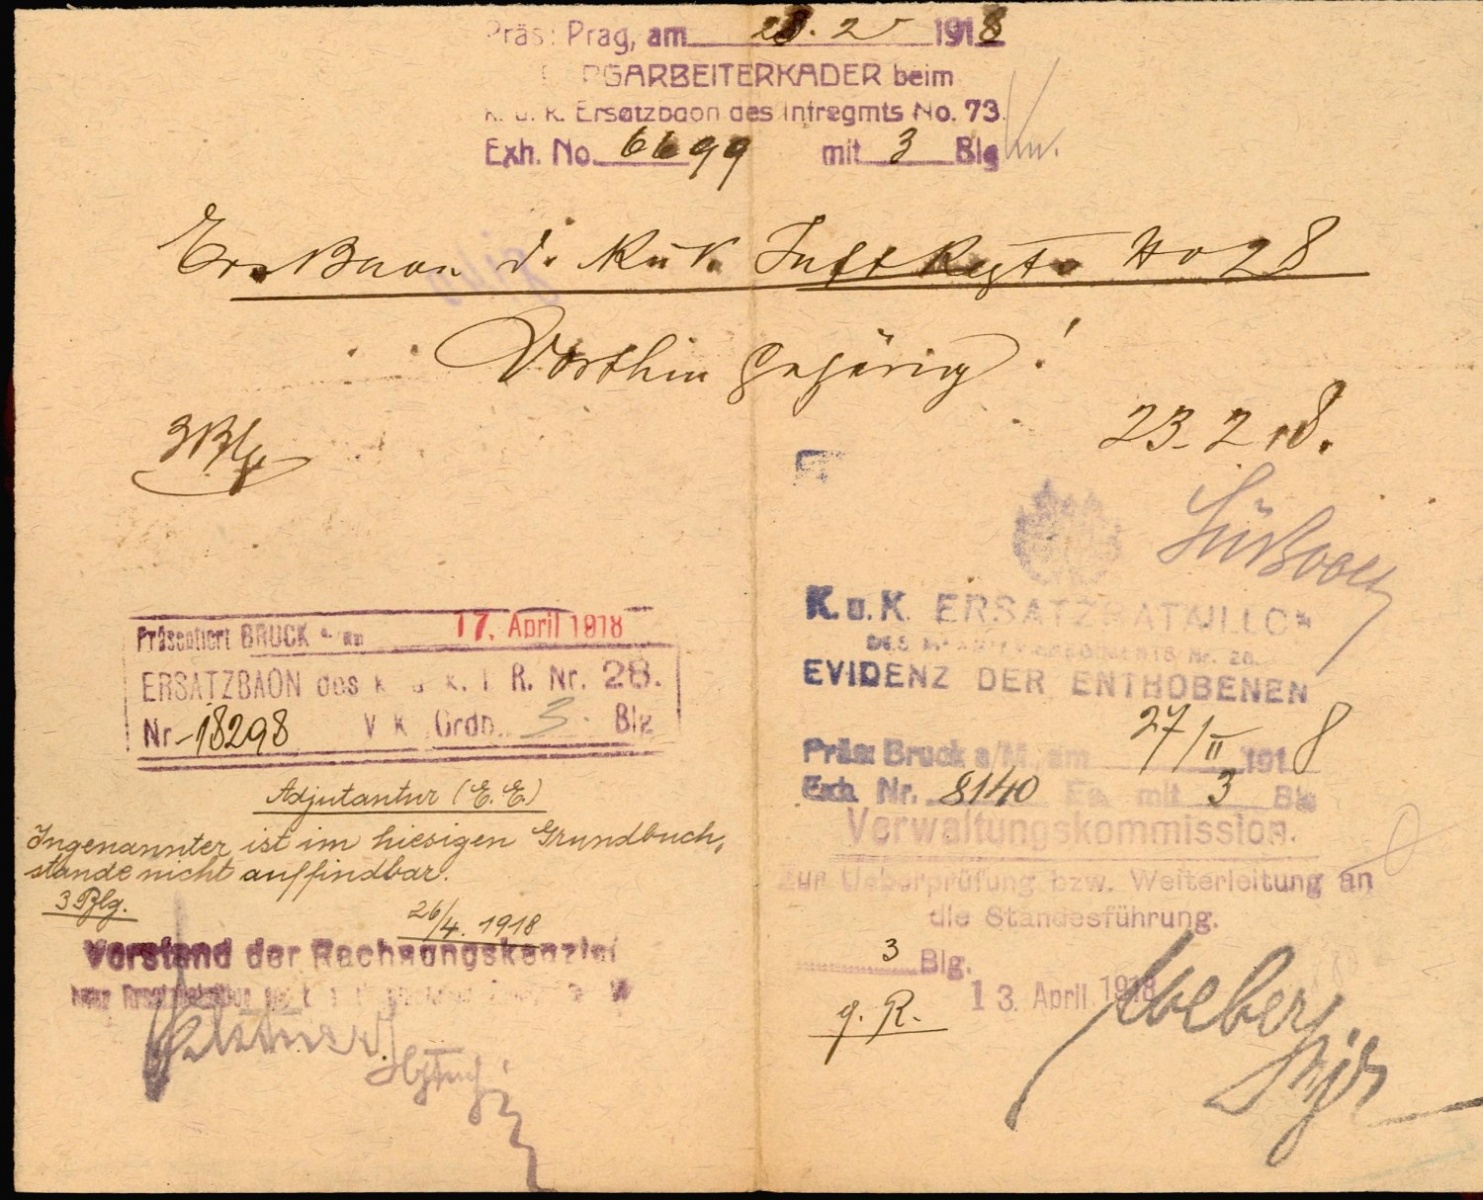 Präs: Prag, am 23. 2 1918
RGARBEITERKADER beim
k. u. k. Ersatzbaon des Infregmts No. 73.
Exh. No. 6699 mit 3 Blg
ErsBaon d. k u k. InftRegts No 28
Dorthin gehörig!
3 Blg
23. 2. 18.
Präsentiert BRUCK a. am 17. April 1918
ERSATZBAON des k u k. I R. Nr. 28.
Nr 18298 V K Ordn. 3. Blg
Adjutantur (E. E.)
Ingenannter ist im hiesigen Grundbuch-
stande nicht auffindbar.
3 Blg.
26/4. 1918
Vorstand der Rechnungskanzlei
K. u. K. ERSATZBATAILLON
DES Nr. 28.
EVIDENZ DER ENTHOBENEN
Präs: Bruck a/M., am 27/II 1918
Exh. Nr. 8140 Ea mit 3 Blg
Verwaltungskommission.
zur Ueberprüfung bzw. Weiterleitung an
die Standesführung.
3 Blg.
13. April 1918
g. R.
Weber
Mjr